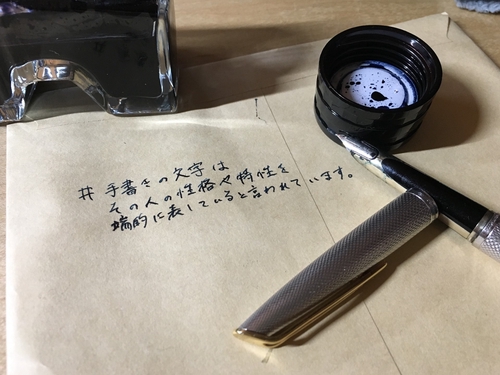 # 手書きの文字は
その人の性格や特性を
端的に表していると言われています。